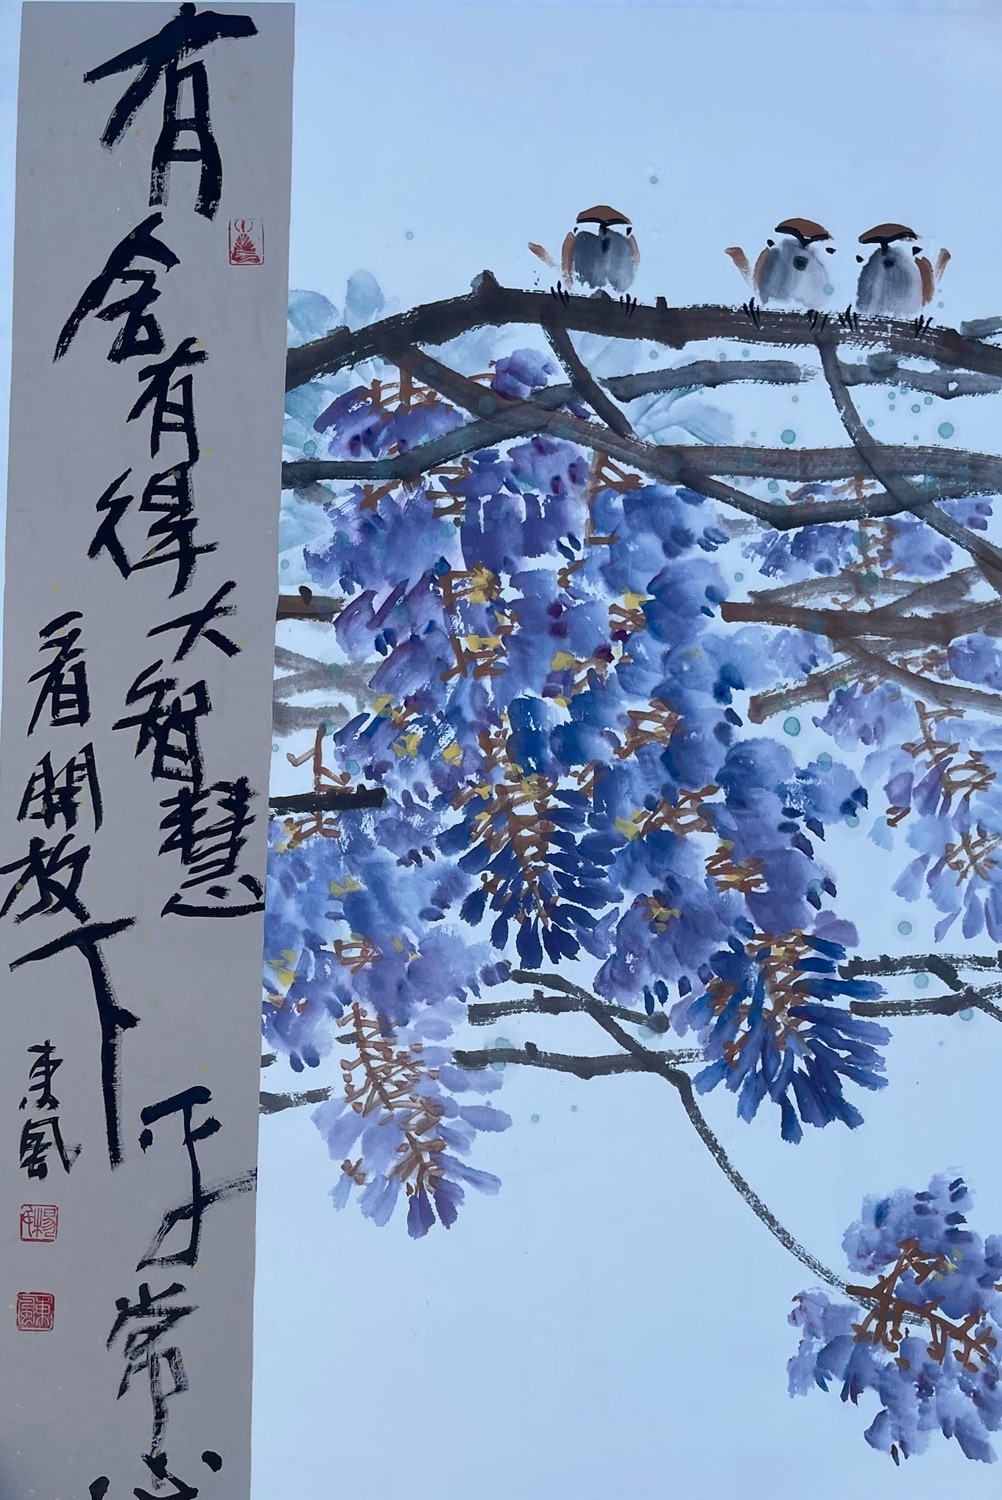 有舍有得大智慧平常心
看開放下
東風